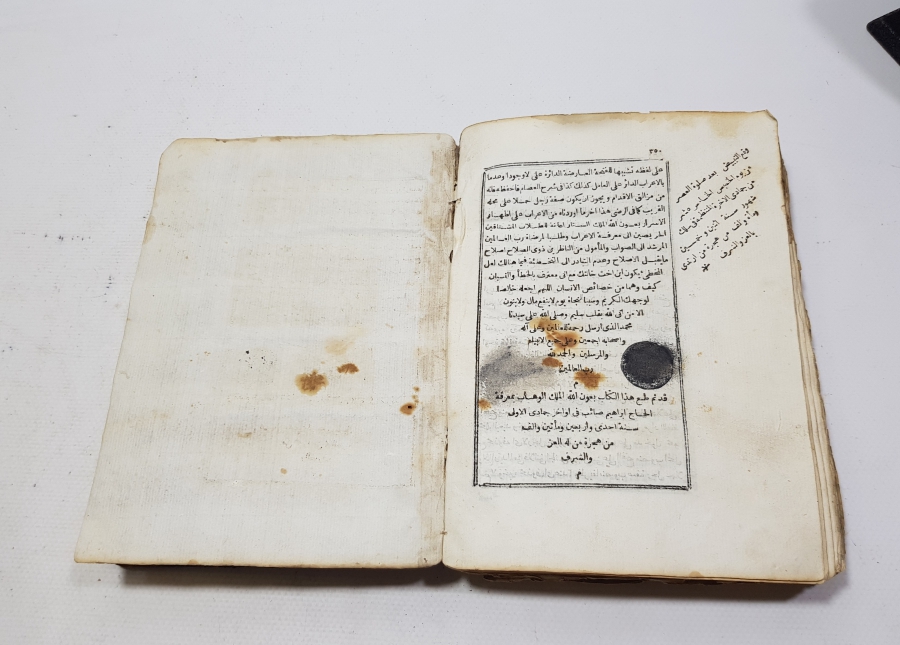 ٣٥٠
على لفظه تشبيها للفتحة العارضة الدائرة على لا وجودا وعدما
بالاعراب الدائر على العامل كذلك كذا فى شرح العصام فاحفظه فانه
من مزالق الاقدام ويجوز ان يكون صفة رجل حملا على محله
القريب كما فى الرضى هذا آخر ما اوردناه من الاعراب على اظهار
الاسرار بعون الله الملك الستار اعانة للطلاب المشتاقين
الحريصين الى معرفة الاعراب وطلبا لمرضاة رب العالمين
المرشد الى الصواب والمأمول من الناظرين ذوى الصلاح اصلاح
مايقبل الاصلاح وعدم التبادر الى التخطئة فيما هنالك لعل
المخطئ يكون ابن اخت خالتك مع انى معترف بالخطأ والنسيان
كيف وهما من خصائص الانسان اللهم اجعله خالصا
لوجهك الكريم وسببا لنجاة يوم لا ينفع مال ولا بنون
الا من اتى الله بقلب سليم وصلى الله على سيدنا
محمد الذى ارسل رحمة للعالمين وعلى آله
واصحابه اجمعين وعلى جميع الانبياء
والمرسلين والحمد لله
رب العالمين
م
قد تم طبع هذا الكتاب بعون الله الملك الوهاب بمعرفة
الحاج ابراهيم صائب فى اواخر جمادى الاولى
سنة احدى واربعين ومأتين والف
من هجرة من له العز
والشرف
م
وقع التبييض بعد صلوة العصر
من يوم الخميس الخامس عشر
من جمادى الآخرة المنتظم فى سلك
شهور سنة اثنين وخمسين
ومأة والف من هجرة من ارتدى
بالعز والشرف